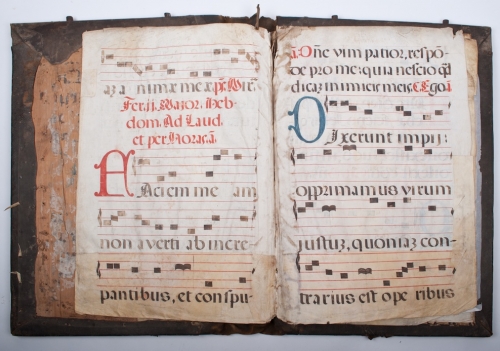 aʒ a nimæ meæ. ps. Mise.
Fer. ij. Major. Heb-
dom. Ad Laud.
et per Horas. añ.
FAciem me am
non averti ab incre-
pantibus, et conspu-
añ. Dñe vim patior, respõ-
de pro me: quia nescio qď
dicaʒ inimicis meis. C. Ego. añ
DIxerunt impij:
opprimamus virum
justuʒ, quoniaʒ con-
trarius est ope ribus